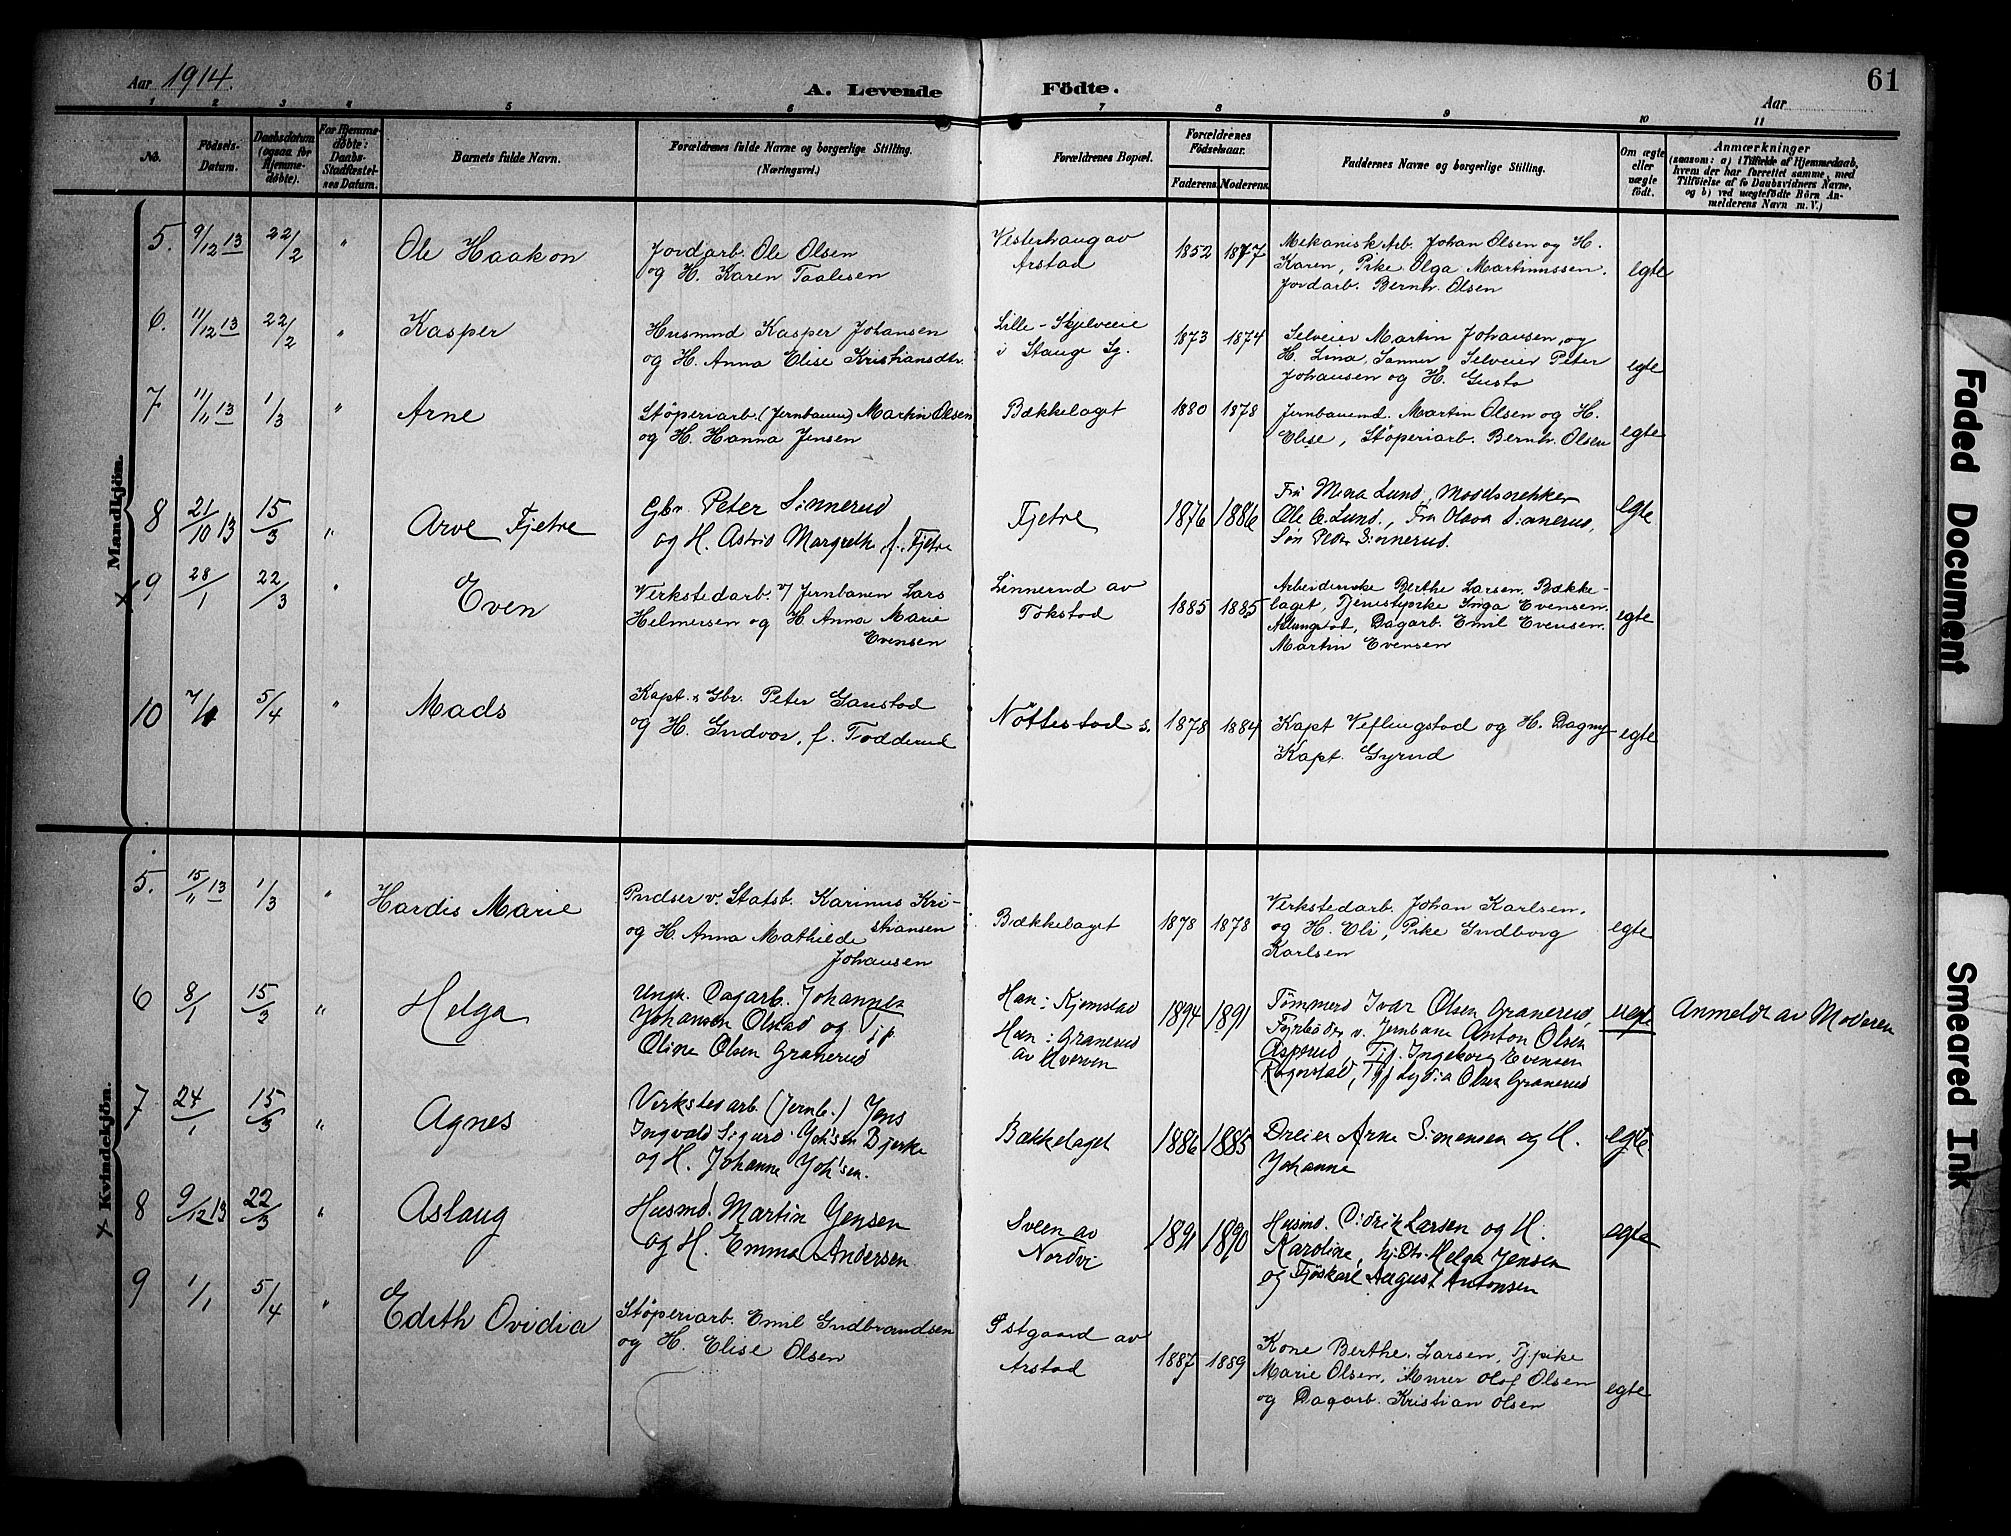 Aar 1914.
A. Levende Födte.
Aar
61
1 2 3 4 5 6 7 8 9 10 11
No.
Födsels-
Datum.
Daabsdatum
(ogsaa for
Hjemme-
döbte).
For Hjemme-
döbte:
Daabs-
Stadfæstel-
ses Datum.
Barnets fulde Navn.
Forældrenes fulde Navne og borgerlige Stilling.
(Næringsvei.)
Forældrenes Bopæl.
Forældrenes
Födselsaar.
Faderens. Moderens.
Faddernes Navne og borgerlige Stilling.
Om ægte
eller
uægte
födt.
Anmærkninger
(saasom: a) i Tilfælde af Hjemmedaab,
hvem der har forrettet samme, med
Tilföielse af to Daabsvidners Navne,
og b) ved uægtefödte Börn An-
melderens Navn m. V.)
Mandkjön.
5. 9/12 13 22/2 " Ole Haakon
Jordarb. Ole Olsen
og H. Karen Taalesen
Vesterhaug av
Arstad
1852 1877
Mekanisk Arb. Johan Olsen og H.
Karen, Pike Olga Martinussen.
Jordarb. Bernh. Olsen
egte
6. 11/12 13 22/2 " Kasper
Husmnd Kasper Johansen
og H. Anna Elise Kristiansdtr.
Lille-Skjelveie
i Stange Sg.
1873 1874
Selveier Martin Johansen, og
H. Lina, Sanner Selveier Peter
Johansen og H. Gusta
egte
7 11/11 13 1/3 " Arne
Stöperiarb. (Jernbanen) Martin Olsen
og H. Hanna Jensen
Bækkelaget
1880 1878
Jernbanemd. Martin Olsen og H.
Elise, Stöperiarb. Bernh. Olsen
egte
8 21/10 13 15/3 " Arve Fjetre
Gbr. Peter Sinnerud
og H. Astrid Margreth f. Fjetre
Fjetre
1876 1886
Fru Mina Lund, Modelsnekker
Ole C. Lund., Fru Olava Sinnerud,
Søn Peder Sinnerud.
egte
x 9 28/1 22/3 " Even
Verkstedarb. v/ Jernbanen Lars
Helmersen og H. Anna Marie
Evensen
Linnerud av
Tokstad
1885 1885
Arbeiderske Berthe Larsen, Bække-
laget, Tjenestpike Inga Evensen.
Allungstad, Dagarb. Emil Evensen.
Martin Evensen
egte
10 7/1 5/4 " Mads
Kapt. & Gbr. Peter Gaustad
og H. Gudvor, f. Todderud
Nöttestad s.
1878 1884
Kapt Veflingstad og H. Dagny
Kapt. Gyrud
egte
x Kvindekjön.
5. 15/11 13 1/3 " Hardis Marie
Pudser v. Statsb. Karinus Kri-
stiansen
og H. Anna Mathilde
Johansen
Bækkelaget
1878 1878
Verkstedarb. Johan Karlsen.
og H. Oli, Pike Gudborg
Karlsen
egte
6 8/1 15/3 " Helga
Ungk. Dagarb. Johannes
Johansen Olstad og Tjp
Oline Olsen Granerud
Han: Kjemstad
Hun: Granerud
av Hverven
1894 1891
Tömmerd Ivar Olsen Granerud
Fyrböder v. Jernbane Anton Olsen
Asperud Tjp. Ingeborg Evensen
Ragnstad, Tjp Lydia Olsen Granerud
uegte
Anmeldt av Moderen
7 24/1 15/3 " Agnes
Verkstedarb. (Jernb.) Jens
Ingvald Sigurd Joh'sen Bjerke
og H. Johanne Joh'sen.
Bækkelaget
1886 1885
Dreier Arne Simensen og H.
Johanne
egte
8 9/12 13 22/3 " Aslaug
Husmd. Martin Jensen
og H. Emma Andersen
Sveen av
Nordvi
1891 1890
Husmd. Didrik Larsen og H.
Karoline, hj. Dtr. Helga Jensen
og Fjöskarl August Antonsen
egte
9 1/1 5/4 " Edith Ovidia
Stöperiarb. Emil Gudbrandsen
og H. Elise Olsen
Østgaard av
Arstad
1887 1889
Kone Berthe Larsen, Tj.pike
Marie Olsen, Murer Olof Olsen
og Dagarb. Kristian Olsen
egte
Faded Document
Smeared Ink